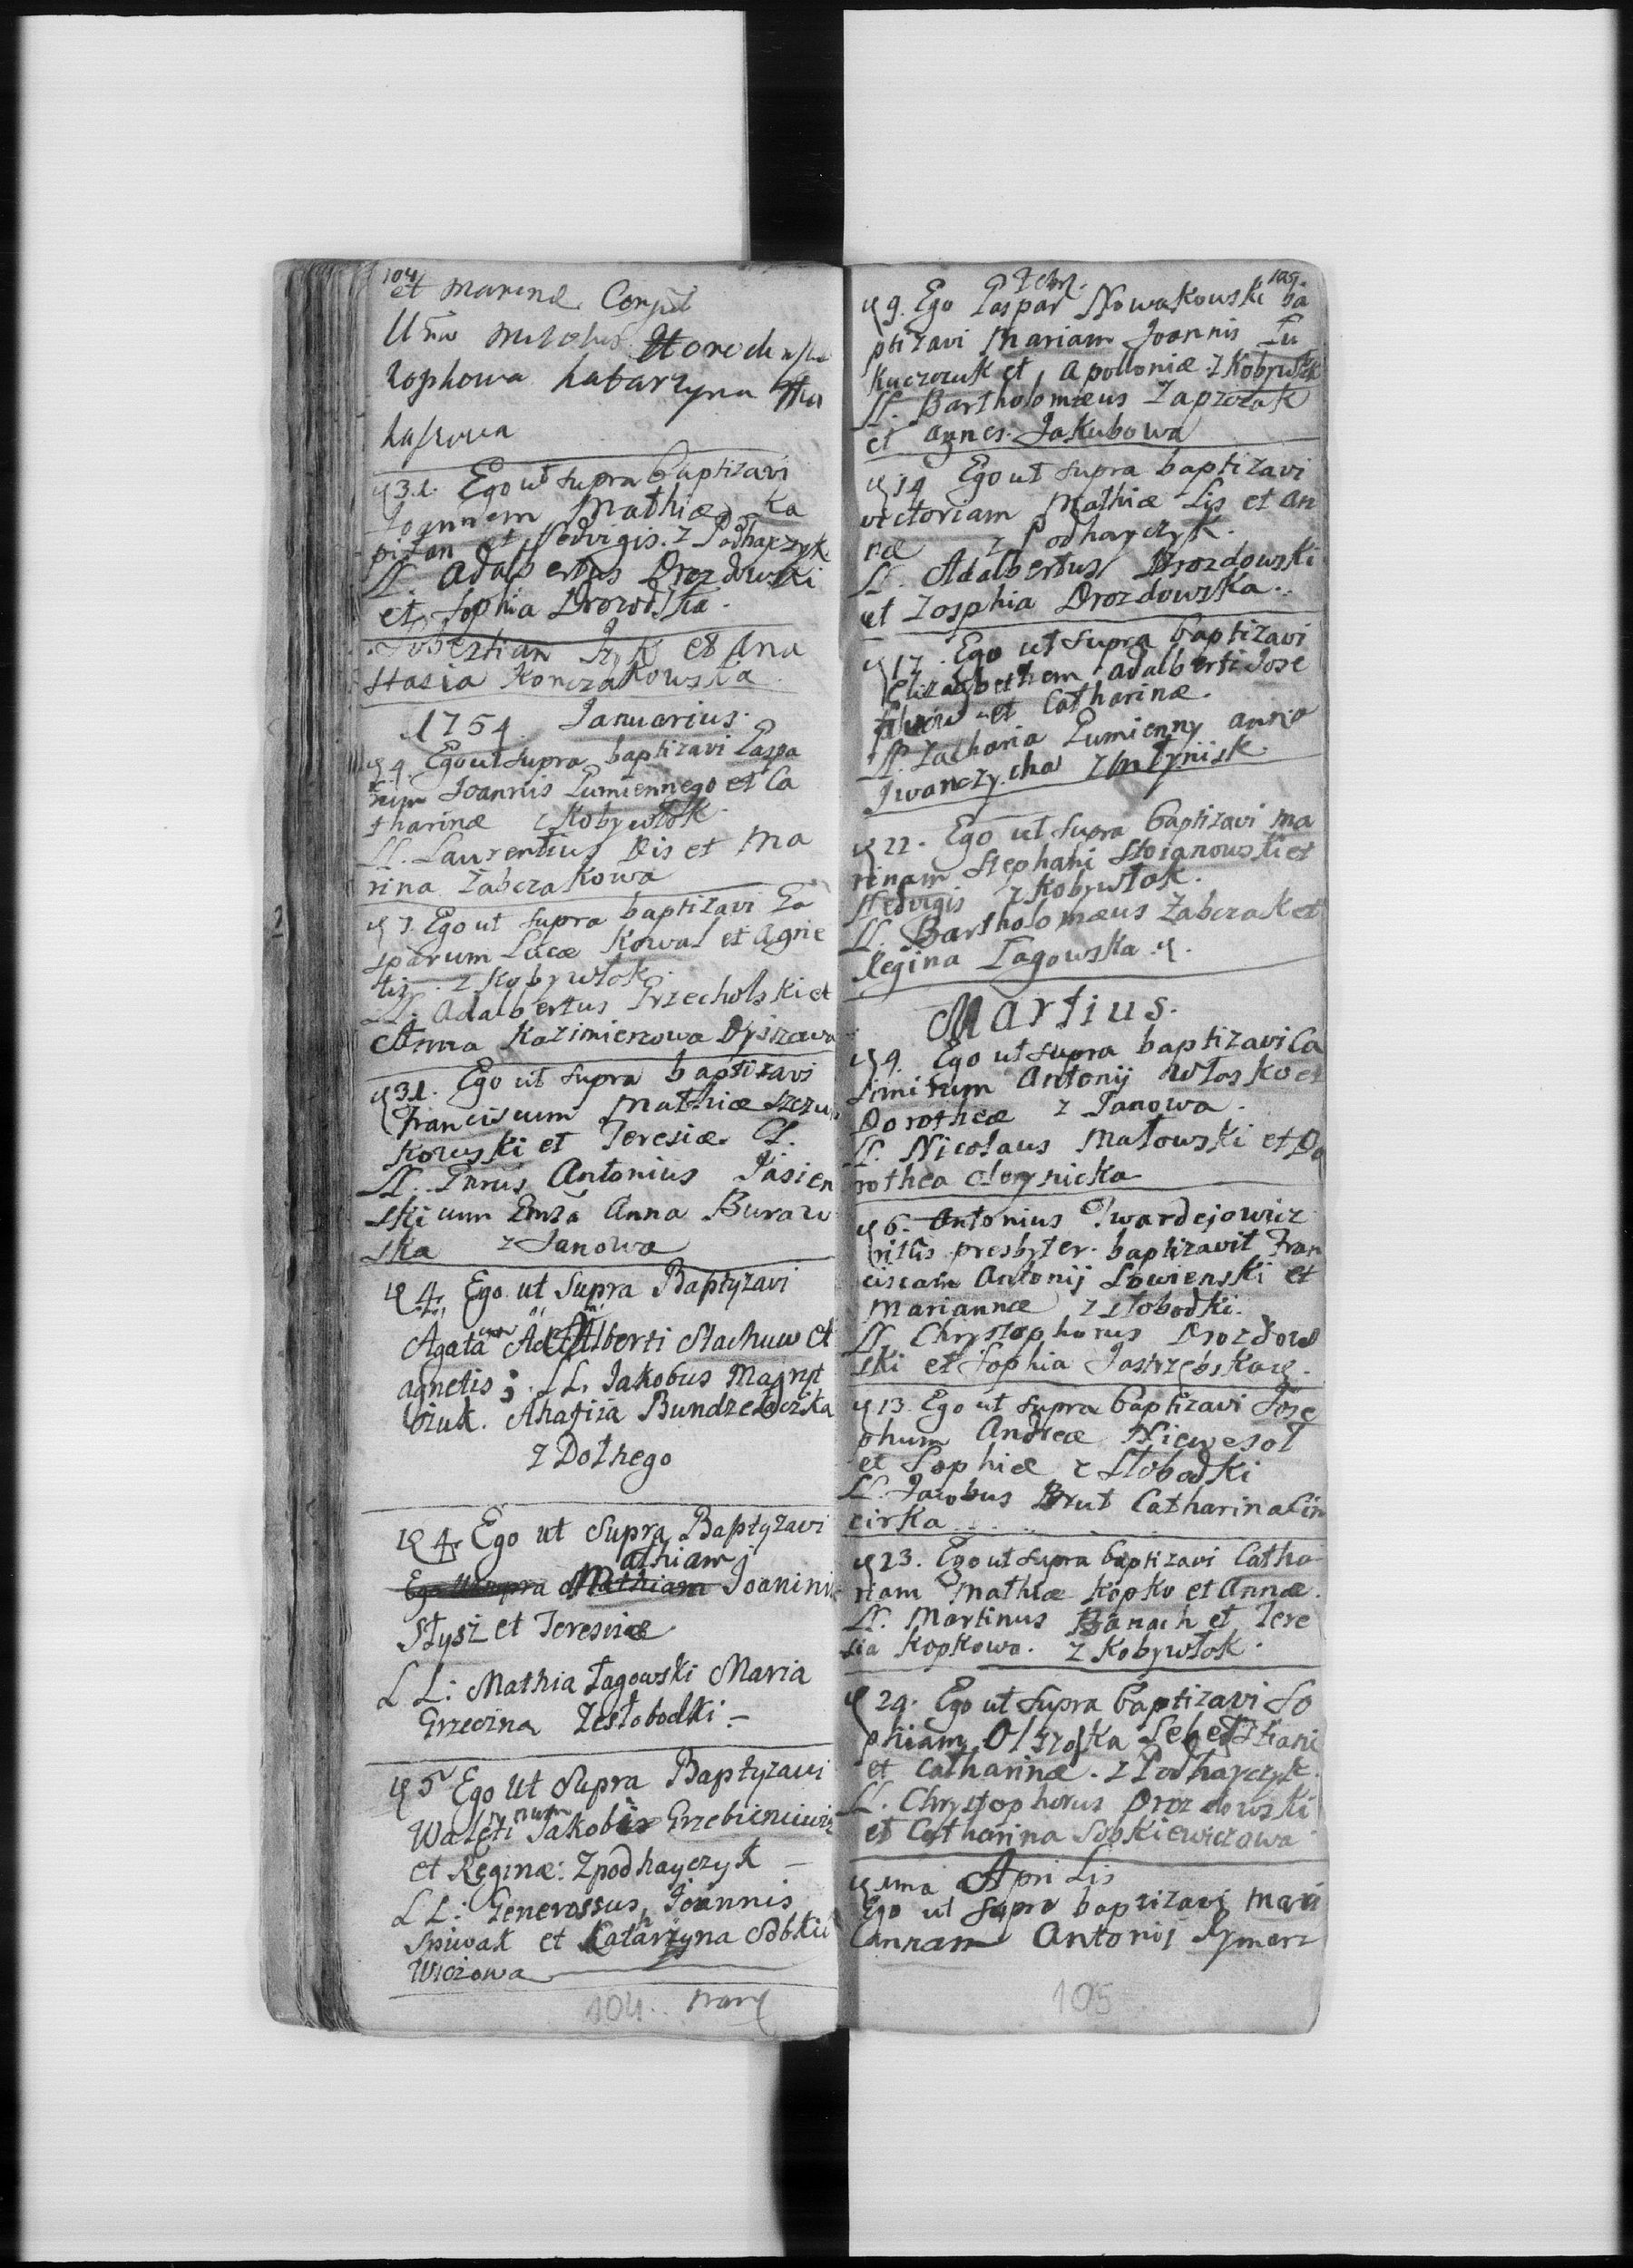 104
et Marinæ Conjut
Horod
Zophowa Katarzyna
31. Ego ut supra baptizavi
Joannem Mathiæ Ka
pitan et Hedvigis. z Podhayczyk
LL. Adalbertus Drozdowski
et Sophia Drozodska.
et Ana
stasia Konczakowska
1754. Januarius.
4. Ego ut supra baptizavi Gaspa
rum Joannis Gumiennego et Ca
tharinæ z Kobywłok
LL. Laurentius Lis et Ma
rina Zabczakowa
7. Ego ut supra baptizavi Ga
sparum Lucæ Kowal et Agne
tis. z Kobywłok
LL. Adalbertus Przecholski et
Anna Kazimierzowa
31. Ego ut supra baptizavi
Franciscum Mathiæ Szczu
kowski et Teresiæ.
LL. Antonius Jasien
ski cum Anna Buraw
ska z Janowa
4. Ego ut Supra Baptyzavi
Agatam Adalberti Stachuw et
agnetis; LL. Jakobus
Ahafiia
z Dołhego
4. Ego ut Supra Baptyzavi
athiam
Ego ut supra Mathiam Joannis
Stysz et Teresiiæ
LL: Mathia Łagowski Maria
Grzecina Zesłobodki. -
5 Ego Ut Supra Baptyzavi
Walęti num Jakobi Grzebieniewicz
et Reginæ: Zpodhayczyk -
LL: Generossus Joannis
Spiwak et Katarzyna Sobkie
wiczowa
104. Mary
Febr.
105.
9. Ego Gaspar Nowakowski ba
ptizavi Mariam Joannis Łu
kaczczuk et Apolloniæ z Kobywłok
LL. Bartholomæus Zapzozak
et Agnes Jakubowa
14 Ego ut supra baptizavi
victoriam Mathiæ Lis et An
næ z Podhayczyk.
LL. Adalbertus Drozdowski
et Zosphia Drozdowska..
17. Ego ut supra baptizavi
Elizabethem Adalberti Jose
et Catharinæ.
LL. Zacharia Gumienny anna
Iwanczycha
22. Ego ut supra baptizavi Ma
rinam Stephani Stoianowski et
Hedvigis z Kobywłok.
LL. Bartholomæus Zabczak et
Regina Łagowska.
Martius.
4. Ego ut supra baptizavi Ca
simirum Antonij Włosko et
Dorotheæ z Janowa.
LL. Nicolaus Matowski et Do
rothea Olerynicka
6. Antonius Twardejowicz
ritus presbyter. baptizavit Fran
ciscam Antonij Łowienski et
Mariannæ z słobodki.
LL. Chrystophorus Drozdow
ski et Sophia Jastrzębska.
13. Ego ut supra baptizavi Jose
phum Andreæ Niewesoł
et Sophiæ z słobodki
LL. Jacobus Brut Catharina Cin
cirka
23. Ego ut supra baptizavi Catha
riam Mathiæ Kopko et Annæ.
LL. Martinus Banach et Tere
sia Kopkowa. z Kobywłok.
24. Ego ut supra baptizavi So
phiam Olszoska Sebestiani
et Catharinæ. z Podhayczyk.
LL. Chrystophorus Drozdowski
et Catharina Sobkiewiczowa
1ma Aprilis
Ego ut supra baptizavi Mari
annam Antonij Rymarz
105